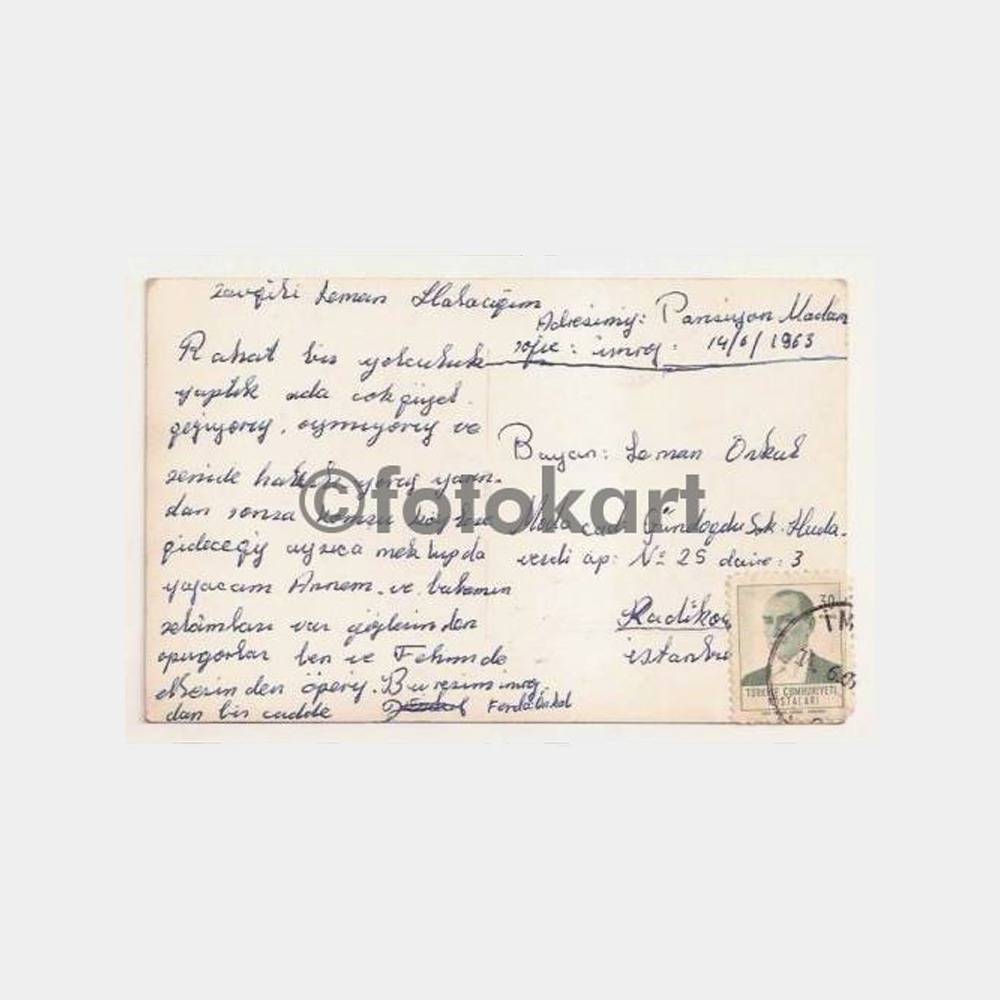 Sevgili Leman Halacığım
Adresimiz: Pansiyon Madam
sofie: imroz: 14/6/1963
Rahat bir yolculuk
yaptık ada çok güzel.
geziyoruz, oynuyoruz ve
senide
dan sonra komşu
gideceğiz ayrıca mektupda
yazacam Annem ve babamın
selâmları var gözlerinden
öpüyorlar ben ve Fehmide
ellerinden öperiz. Bu resim imroz
dan bir cadde Ferda
Bayan: Leman Orkut
Moda cad: Gündogdu Sok. Huda-
verdi ap: No 25 daire: 3
Kadıköy
istanbu
©fotokart
30
TÜRKİYE CUMHURİYETİ
POSTALARI